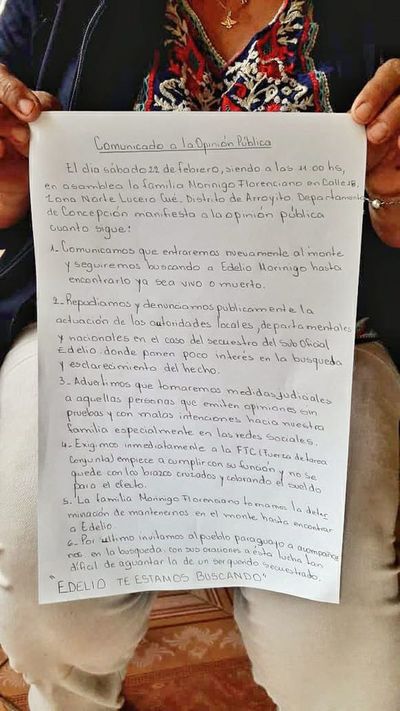 Comunicado a la Opinión Pública
El dia sábado 22 de febrero, siendo a las 11:00 hs,
en asamblea la familia Morinigo Florenciano en Calle 18,
Zona Norte Lucero Cué, Distrito de Arroyito, Departamento
de Concepción manifiesta a la opinión pública
cuanto sigue:
1- Comunicamos que entraremos nuevamente al monte
y seguiremos buscando a Edelio Morinigo hasta
encontrarlo ya sea vivo o muerto.
2- Repudiamos y denunciamos públicamente la
actuación de las autoridades locales, departamentales
y nacionales en el caso del secuestro del Sub Oficial
Edelio. donde ponen poco interés en la busqueda
y esclarecimiento del hecho.
3. Advertimos que tomaremos medidas judiciales
a aquellas personas que emiten opiniones sin
pruebas y con malas intenciones hacia nuestra
familia especialmente en las redes sociales.
4- Exigimos inmediatamente a la FTC (Fuerza de tarea
Conjunta) empiece a cumplir con su función y no se
quede con los brazos cruzados y cobrando el sueldo
para el efecto.
5. La familia Morinigo Florenciano tomamos la deter
minación de mantenernos en el monte hasta encontrar
a Edelio.
6- Por ultimo invitamos al pueblo paraguayo a acompañar
nos en la busqueda con sus oraciones a esta lucha tan
dificil de aguantar la de un ser querido secuestrado.
"EDELIO TE ESTAMOS BUSCANDO"